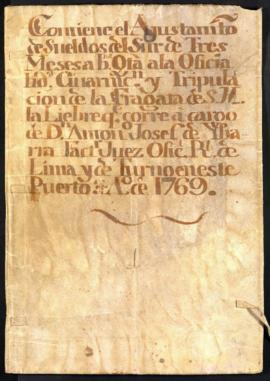 Contiene, el Ajustam.to
de Sueldos del Sur de Tres
Meses a b. Qta a la Oficia
lid.d Guarniz.n y Tripula
cion de la Fragata de S.M.
la Liebre q.e corre a cargo
de D.n Anton.o Josef de Yba
rra Fact.r Juez Ofic. R.l de
Lima y de Turno en este
Puerto A.e de 1769.